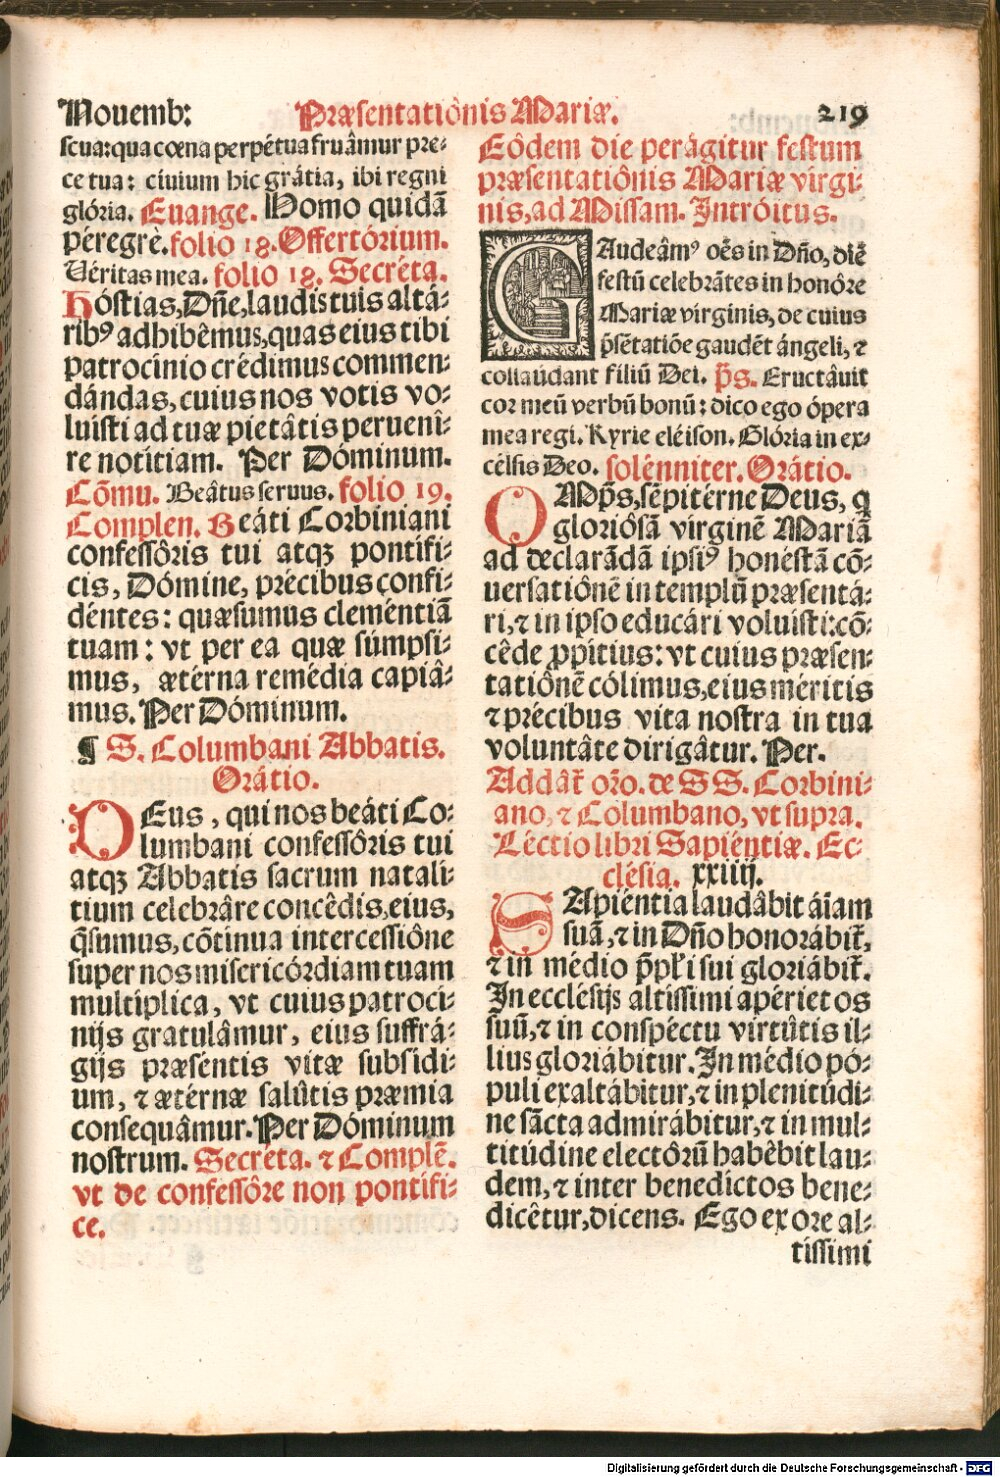 Nouemb: Præsentatiônis Mariæ. 219
scua: qua cœna perpétua fruâmur pre-
ce tua: ciuium hic grátia, ibi regni
glória. Euange. Homo quidã
péregrè. folio 18. Offertórium.
Véritas mea. folio 18. Secréta.
Hóstias, Dñe, laudis tuis altá-
ribꝰ adhibêmus, quas eius tibi
patrocínio crédimus commen-
dándas, cuius nos votis vo-
luisti ad tuæ pietâtis peruení-
re notítiam. Per Dóminum.
Cõmu. Beâtus seruus. folio 19.
Complen. Beáti Corbiniani
confessôris tui atqꝫ pontífi-
cis, Dómine, précibus confi-
déntes: quæsumus cleméntiã
tuam: vt per ea quæ súmpsi-
mus, ætérna remédia capiâ-
mus. Per Dóminum.
¶ S. Columbani Abbatis.
Orâtio.
DEus, qui nos beáti Co-
lumbani confessôris tui
atqꝫ Abbatis sacrum natalí-
tium celebrâre concêdis, eius,
q̃sumus, cõtinua intercessiône
super nos misericórdiam tuam
multíplica, vt cuius patrocí-
nijs gratulâmur, eius suffrá-
gijs præséntis vitæ subsídi-
um, ⁊ ætérnæ salûtis præmia
consequâmur. Per Dóminum
nostrum. Secréta. ⁊ Complẽ.
vt de confessôre non pontífi-
ce.
Eôdem die perágitur festum
præsentatiônis Mariæ vírgi-
nis, ad Missam. Intróitus.
GAudeâmꝰ oẽs in Dño, diẽ
festũ celebrãtes in honôre
Mariæ vírginis, de cuius
p̃sẽtatiõe gaudẽt ángeli, ⁊
collaúdant filiũ Dei. p̃s. Eructâuit
cor meũ verbũ bonũ: dico ego ópera
mea regi. Kyrie eléison. Glória in ex-
célsis Deo. solénniter. Orátio.
OMp̃s, sẽpitérne Deus, q
gloriôsã vírginẽ Mariã
ad declarãdã ipsiꝰ honéstã cõ-
uersatiônẽ in templũ præsentá-
ri, ⁊ in ipso educári voluísti: cõ-
cêde ꝓpítius: vt cuius præsen-
tatiônẽ cólimus, eius méritis
⁊ précibus vita nostra in tua
voluntâte dirigâtur. Per.
Addãt̃ oro. de SS. Corbini-
ano, ⁊ Columbano, vt supra.
Léctio libri Sapiéntiæ. Ec-
clésia. xxiiij.
SApiéntia laudâbit áiam
suã, ⁊ in Dño honorábit̃,
⁊ in médio p̃pl̃i sui gloriábit̃.
In ecclésijs altíssimi apériet os
suũ, ⁊ in conspéctu virtûtis il-
lius gloriábitur. In médio pó-
puli exaltábitur, ⁊ in plenitúdi-
ne sãcta admirábitur, ⁊ in mul-
titúdine electôrũ habêbit lau-
dem, ⁊ inter benedíctos bene-
dicêtur, dicens. Ego ex ore al-
tíssimi
Digitalisierung gefördert durch die Deutsche Forschungsgemeinschaft - DFG